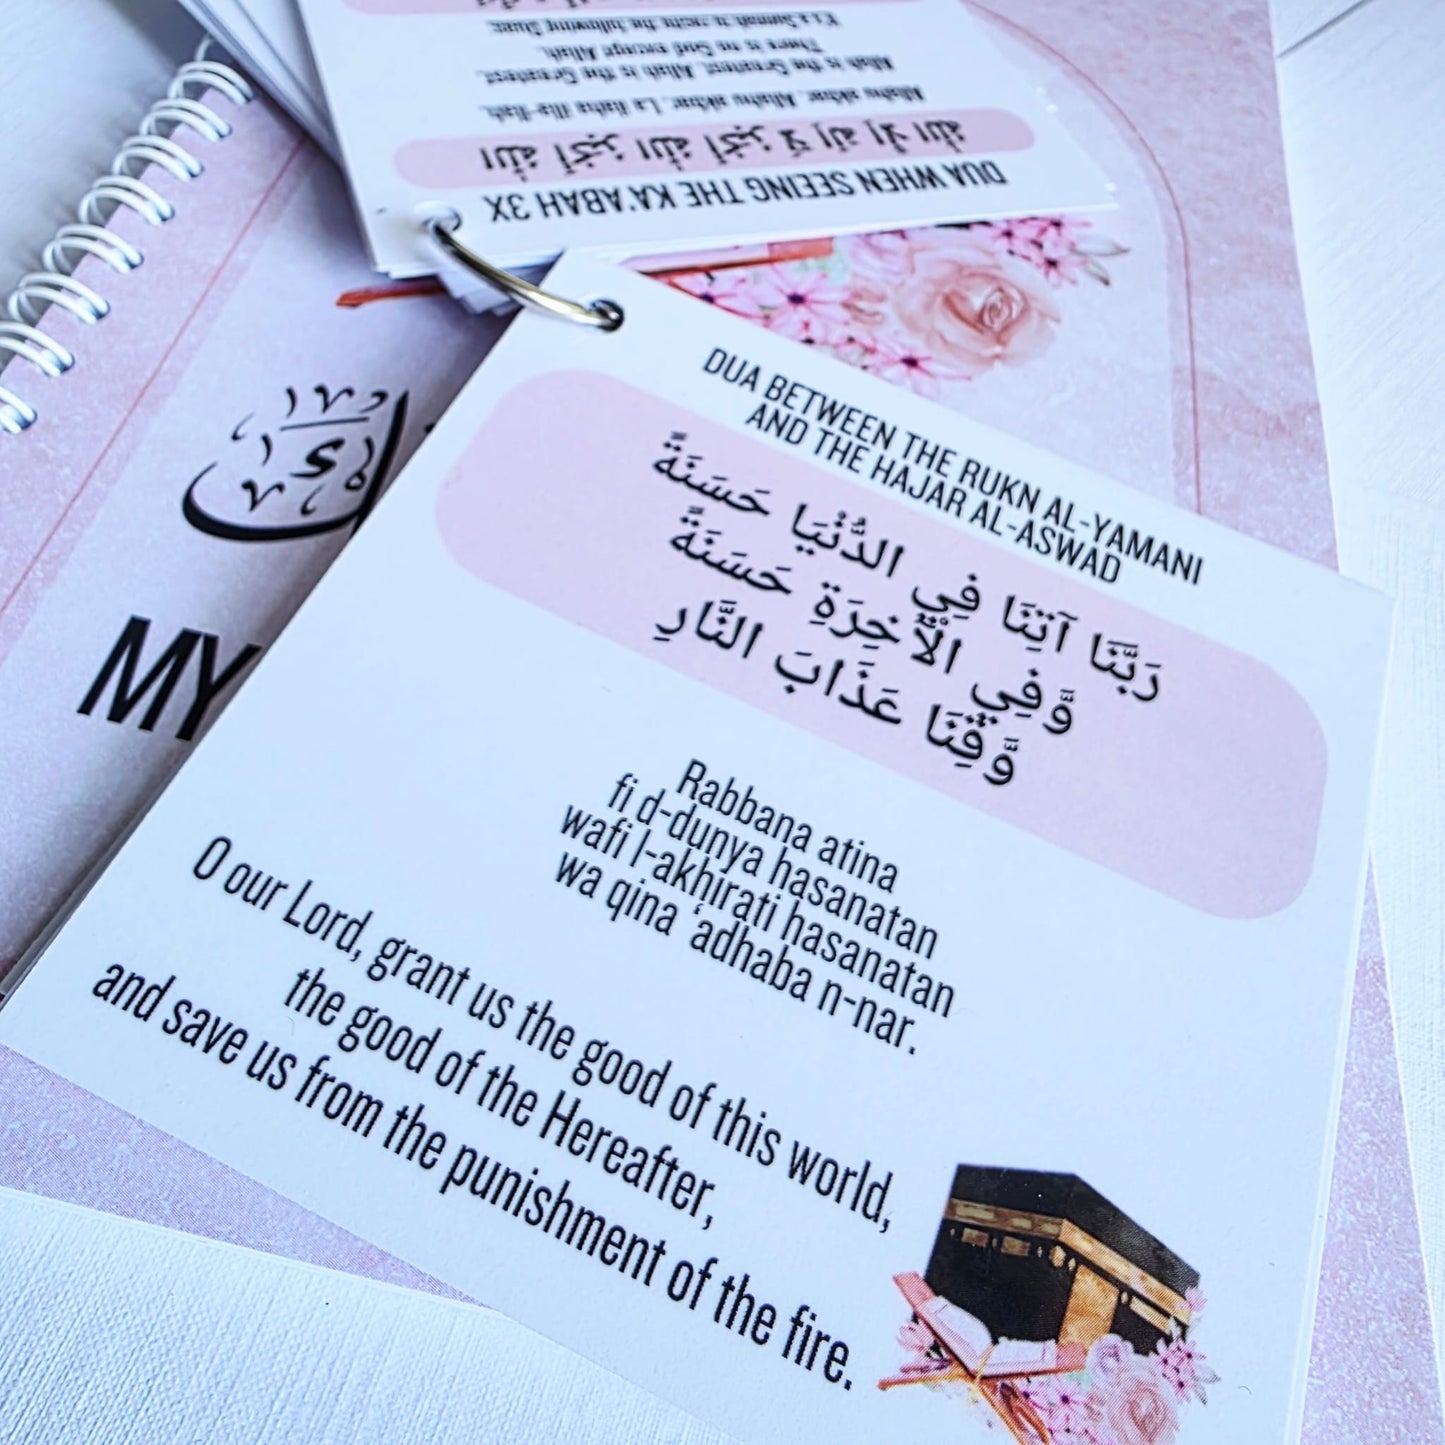 It's a Sunnah to recite the following Duas:
There is no God except Allah.
Allah is the Greatest, Allah is the Greatest,
Allahu akbar, Allahu akbar, La ilaha illa-llah.
اللهُ أَكْبَرُ اللهُ أَكْبَرُ لَا إِلٰهَ إِلَّا اللهُ
DUA WHEN SEEING THE KA'ABAH 3X
MY
DUA BETWEEN THE RUKN AL-YAMANI
AND THE HAJAR AL-ASWAD
رَبَّنَا آتِنَا فِي الدُّنْيَا حَسَنَةً
وَّفِي الْآخِرَةِ حَسَنَةً
وَّقِنَا عَذَابَ النَّارِ
Rabbana atina
fi d-dunya hasanatan
wafi l-akhirati hasanatan
wa qina ‘adhaba n-nar.
O our Lord, grant us the good of this world,
the good of the Hereafter,
and save us from the punishment of the fire.